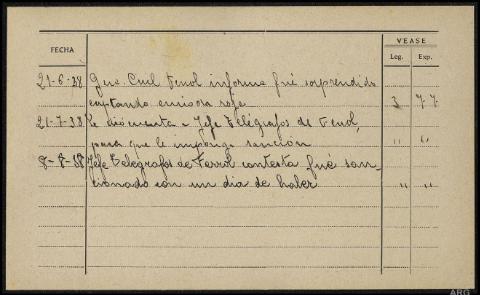 VEASE
FECHA
Leg. Exp.
21-6-38 Gue. Civil Ferrol informa fué sorprendido
captando emisora roja 3 77
21-7-38 Se dió cuenta a Jefe Telégrafos de Ferrol,
para que le imponga sanción " "
8-8-38 Jefe Telegrafos de Ferrol contesta fué san-
cionado con un dia de haber " "
ARG